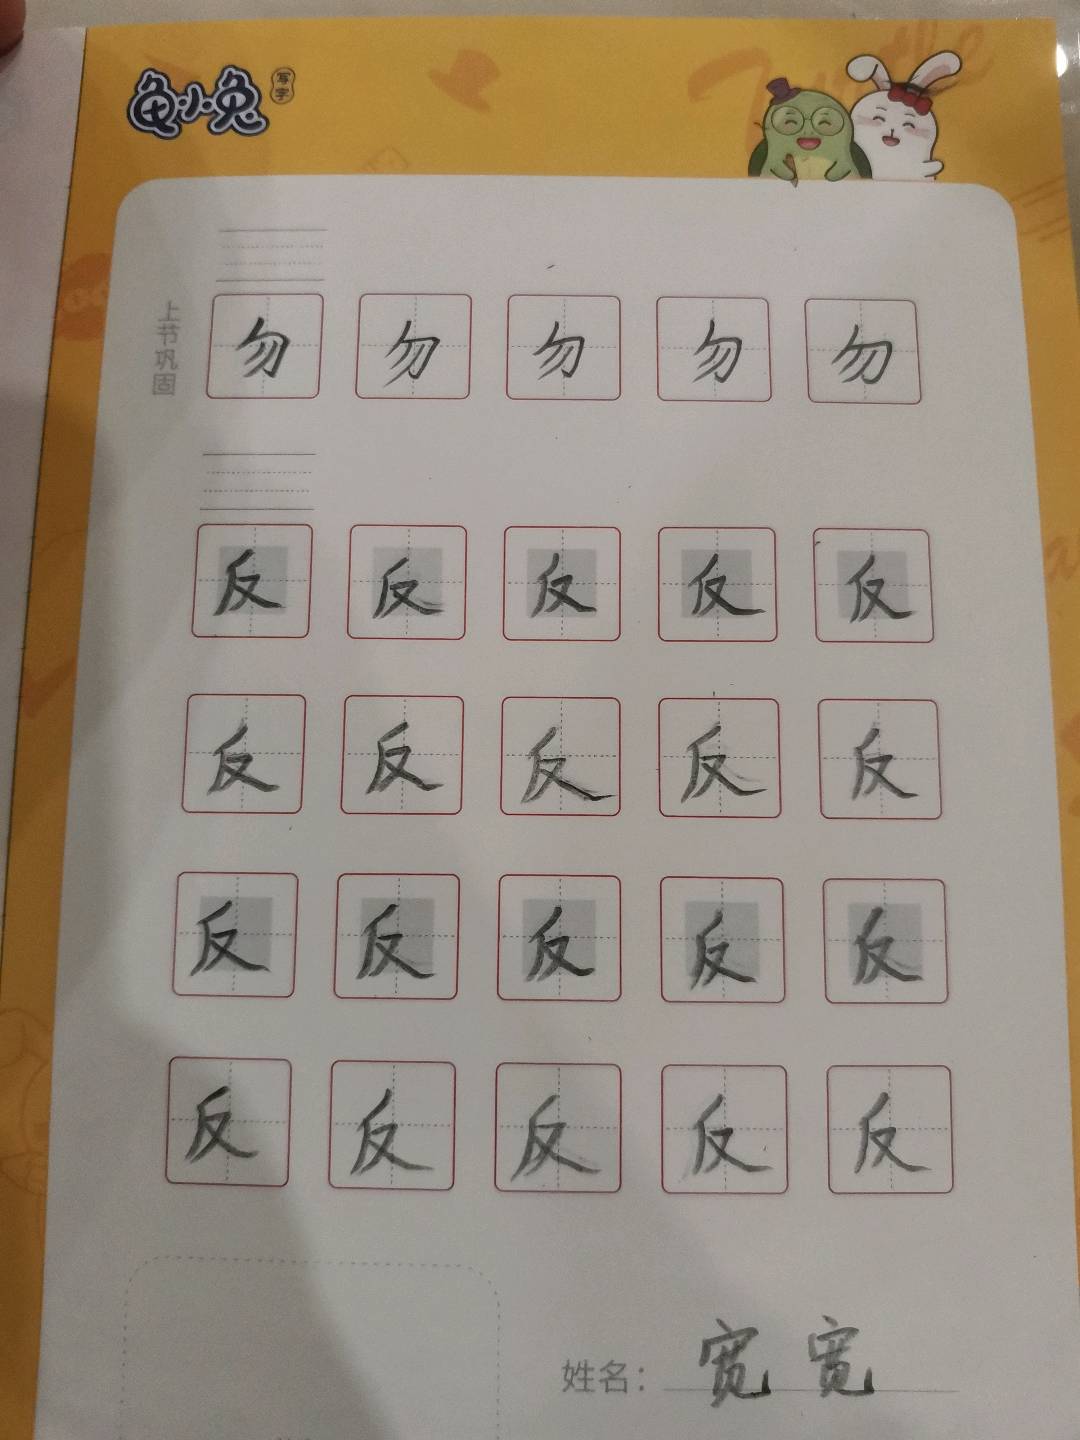 龟小兔
写字
上节巩固
勿 勿 勿 勿 勿
反 反 反 反 反
反 反 反 反 反
反 反 反 反 反
反 反 反 反 反
姓名： 宽宽